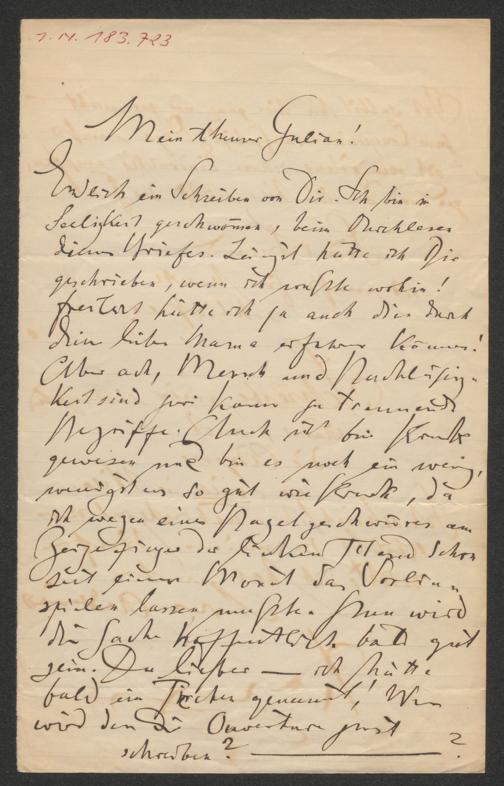 I. N. 183.723
Mein theurer Gulian!
Endlich ein Schreiben von Dir. Ich bin in
Seeligkeit geschwommen, beim Durchlesen
dieses Briefes. Längst hätte ich Dir
geschrieben, wenn ich wusste wohin!
Freilich hätte ich ja auch dies durch
Deine liebe Mama erfahren können!
Aber ach, Mensch und Nachlässig-
keit sind zwei kaum zu trennende
Begriffe. Auch ich bin krank
gewesen und bin es noch ein wenig,
wenigstens so gut wie krank, da
ich wegen eines Nagelgeschwüres am
Zeigefinger der linken Hand schon
seit einem Monat das Violin-
spielen lassen musste. Nun wird
die Sache hoffentlich bald gut
sein. Du lieber — ich hätte
bald ein genannt! Wer
wird denn die Ouverture
schreiben? — ?